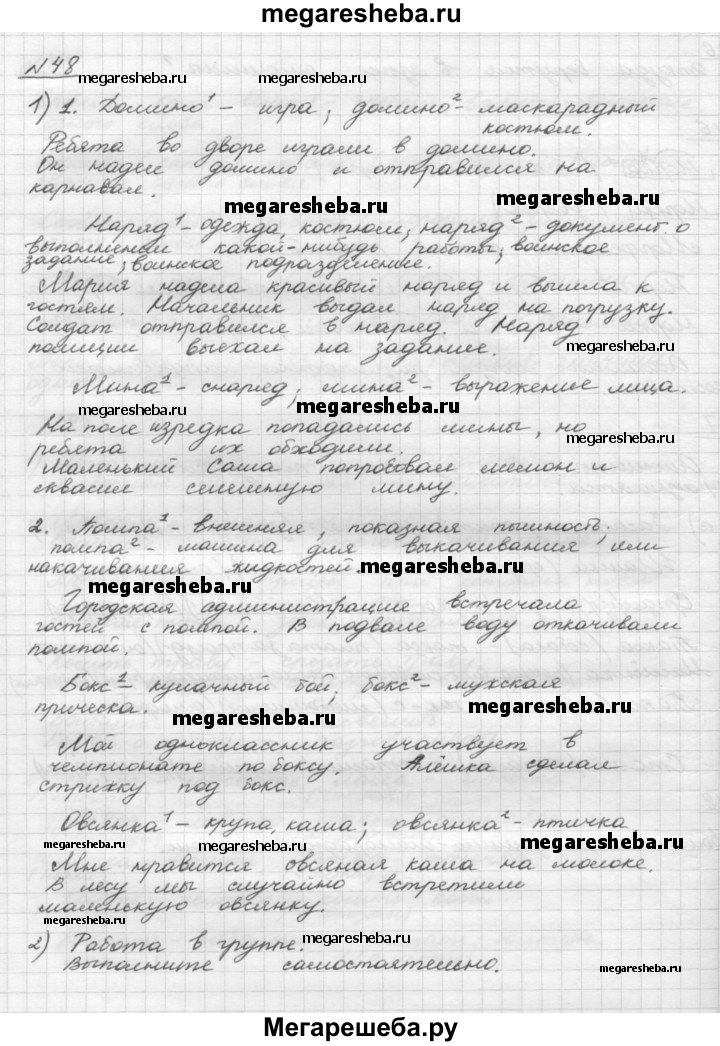 megaresheba.ru
№48
megaresheba.ru megaresheba.ru
1) 1. Домино¹ - игра; домино² - маскарадный
костюм.
Ребята во дворе играли в домино.
Он надел домино и отправился на
карнавал.
megaresheba.ru megaresheba.ru
Наряд¹ - одежда, костюм; наряд² - документ о
выполнении какой-нибудь работы; воинское
задание; воинское подразделение.
Мария надела красивый наряд и вышла к
гостям. Начальник выдал наряд на погрузку.
Солдат отправился в наряд. Наряд
полиции выехал на задание.
megaresheba.ru
Мина¹ - снаряд; мина² - выражение лица.
megaresheba.ru megaresheba.ru
На поле изредка попадались мины, но
ребята их обходили.
Маленький Саша попробовал лимон и
сквасил смешную мину.
2. Помпа¹ - внешняя, показная пышность;
помпа² - машина для выкачивания или
накачивания жидкостей.
megaresheba.ru
megaresheba.ru
Городская администрация встречала
гостей с помпой. В подвале воду откачивали
помпой.
Бокс¹ - кулачный бой; бокс² - мужская
прическа.
megaresheba.ru megaresheba.ru
Мой одноклассник участвует в
чемпионате по боксу. Алёшка сделал
стрижку под бокс.
Овсянка¹ - крупа, каша; овсянка² - птичка
megaresheba.ru megaresheba.ru
Мне нравится овсяная каша на молоке.
В лесу мы случайно встретили
маленькую овсянку.
megaresheba.ru
2) Работа в группе.
megaresheba.ru
Выполните самостоятельно.
megaresheba.ru
Мегарешеба.ру